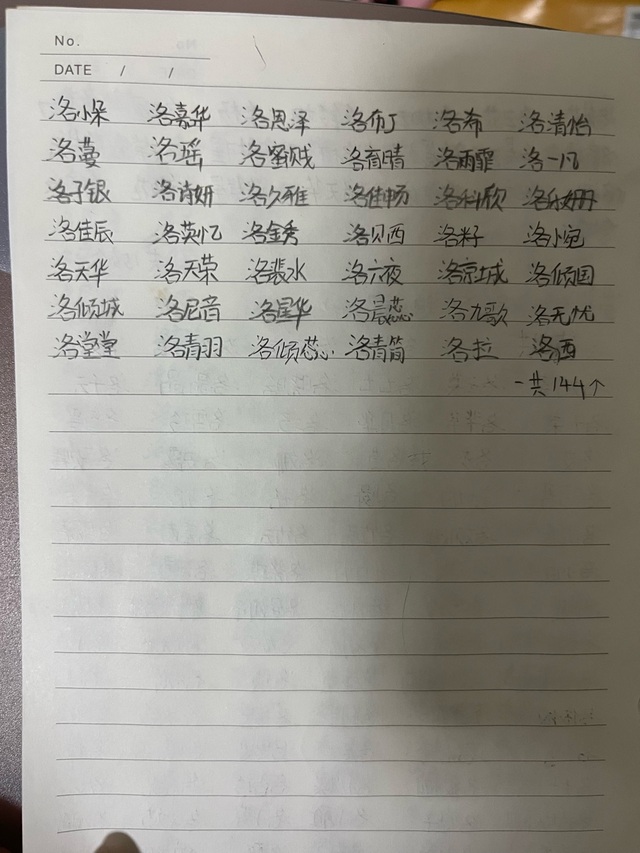 No.
DATE / /
洛小呆 洛嘉华 洛思泽 洛布丁 洛希 洛清怡
洛蔓 洛瑶 洛蜜贱 洛育晴 洛雨霏 洛一凡
洛子银 洛诗妍 洛久雅 洛佳畅 洛科欣
洛佳辰 洛英忆 洛金秀 洛贝西 洛籽 洛小宛
洛天华 洛天荣 洛裴水 洛六夜 洛京城 洛倾国
洛倾城 洛尼音 洛星华 洛晨蕊 洛九歌 洛无忧
洛堂堂 洛青羽 洛倾蕊 洛青简 洛拉 洛西
一共144个